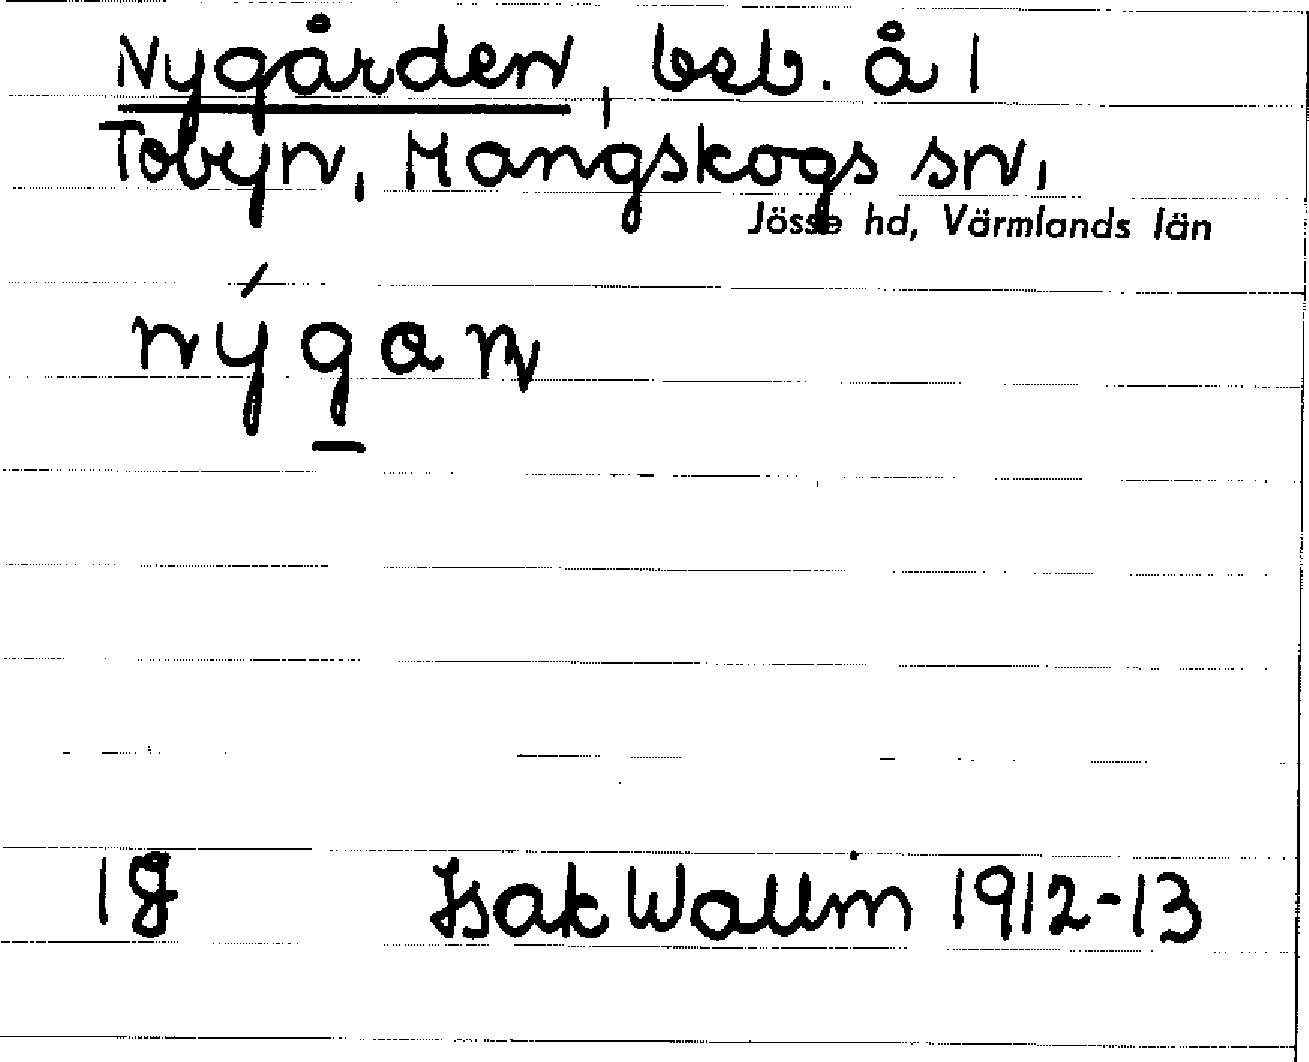 Nygården, beb. å 1
Tobyn, Mangskogs sn,
Jösse hd, Värmlands län
nýgaņ
18 Isak Wallin 1912-13